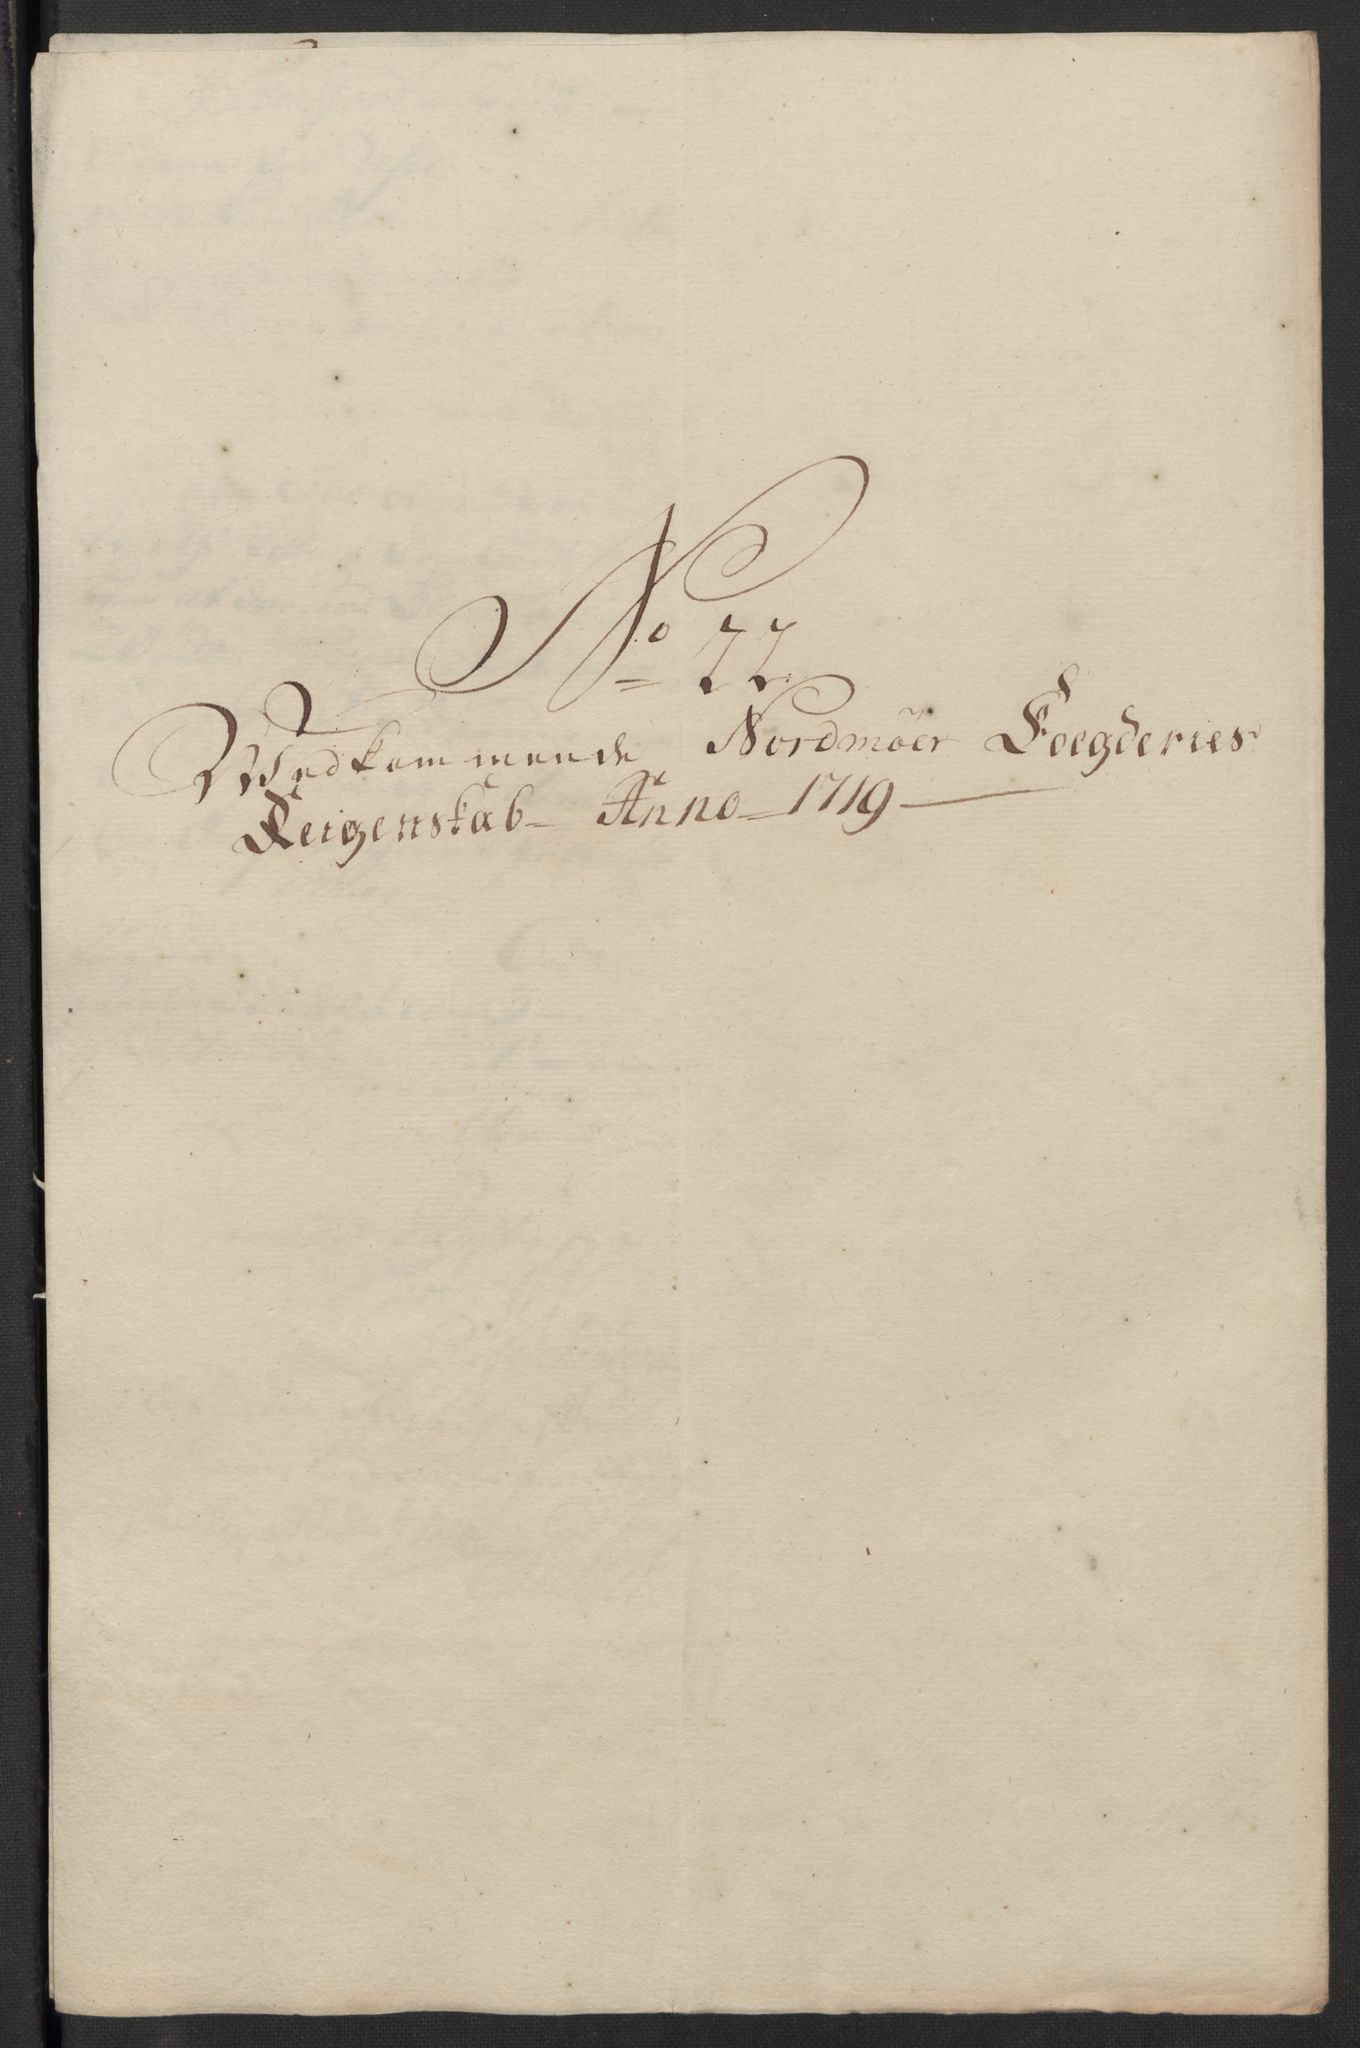 No 22
Vedkommende Nordmöer Foegderies
Reigenskab Anno 1719